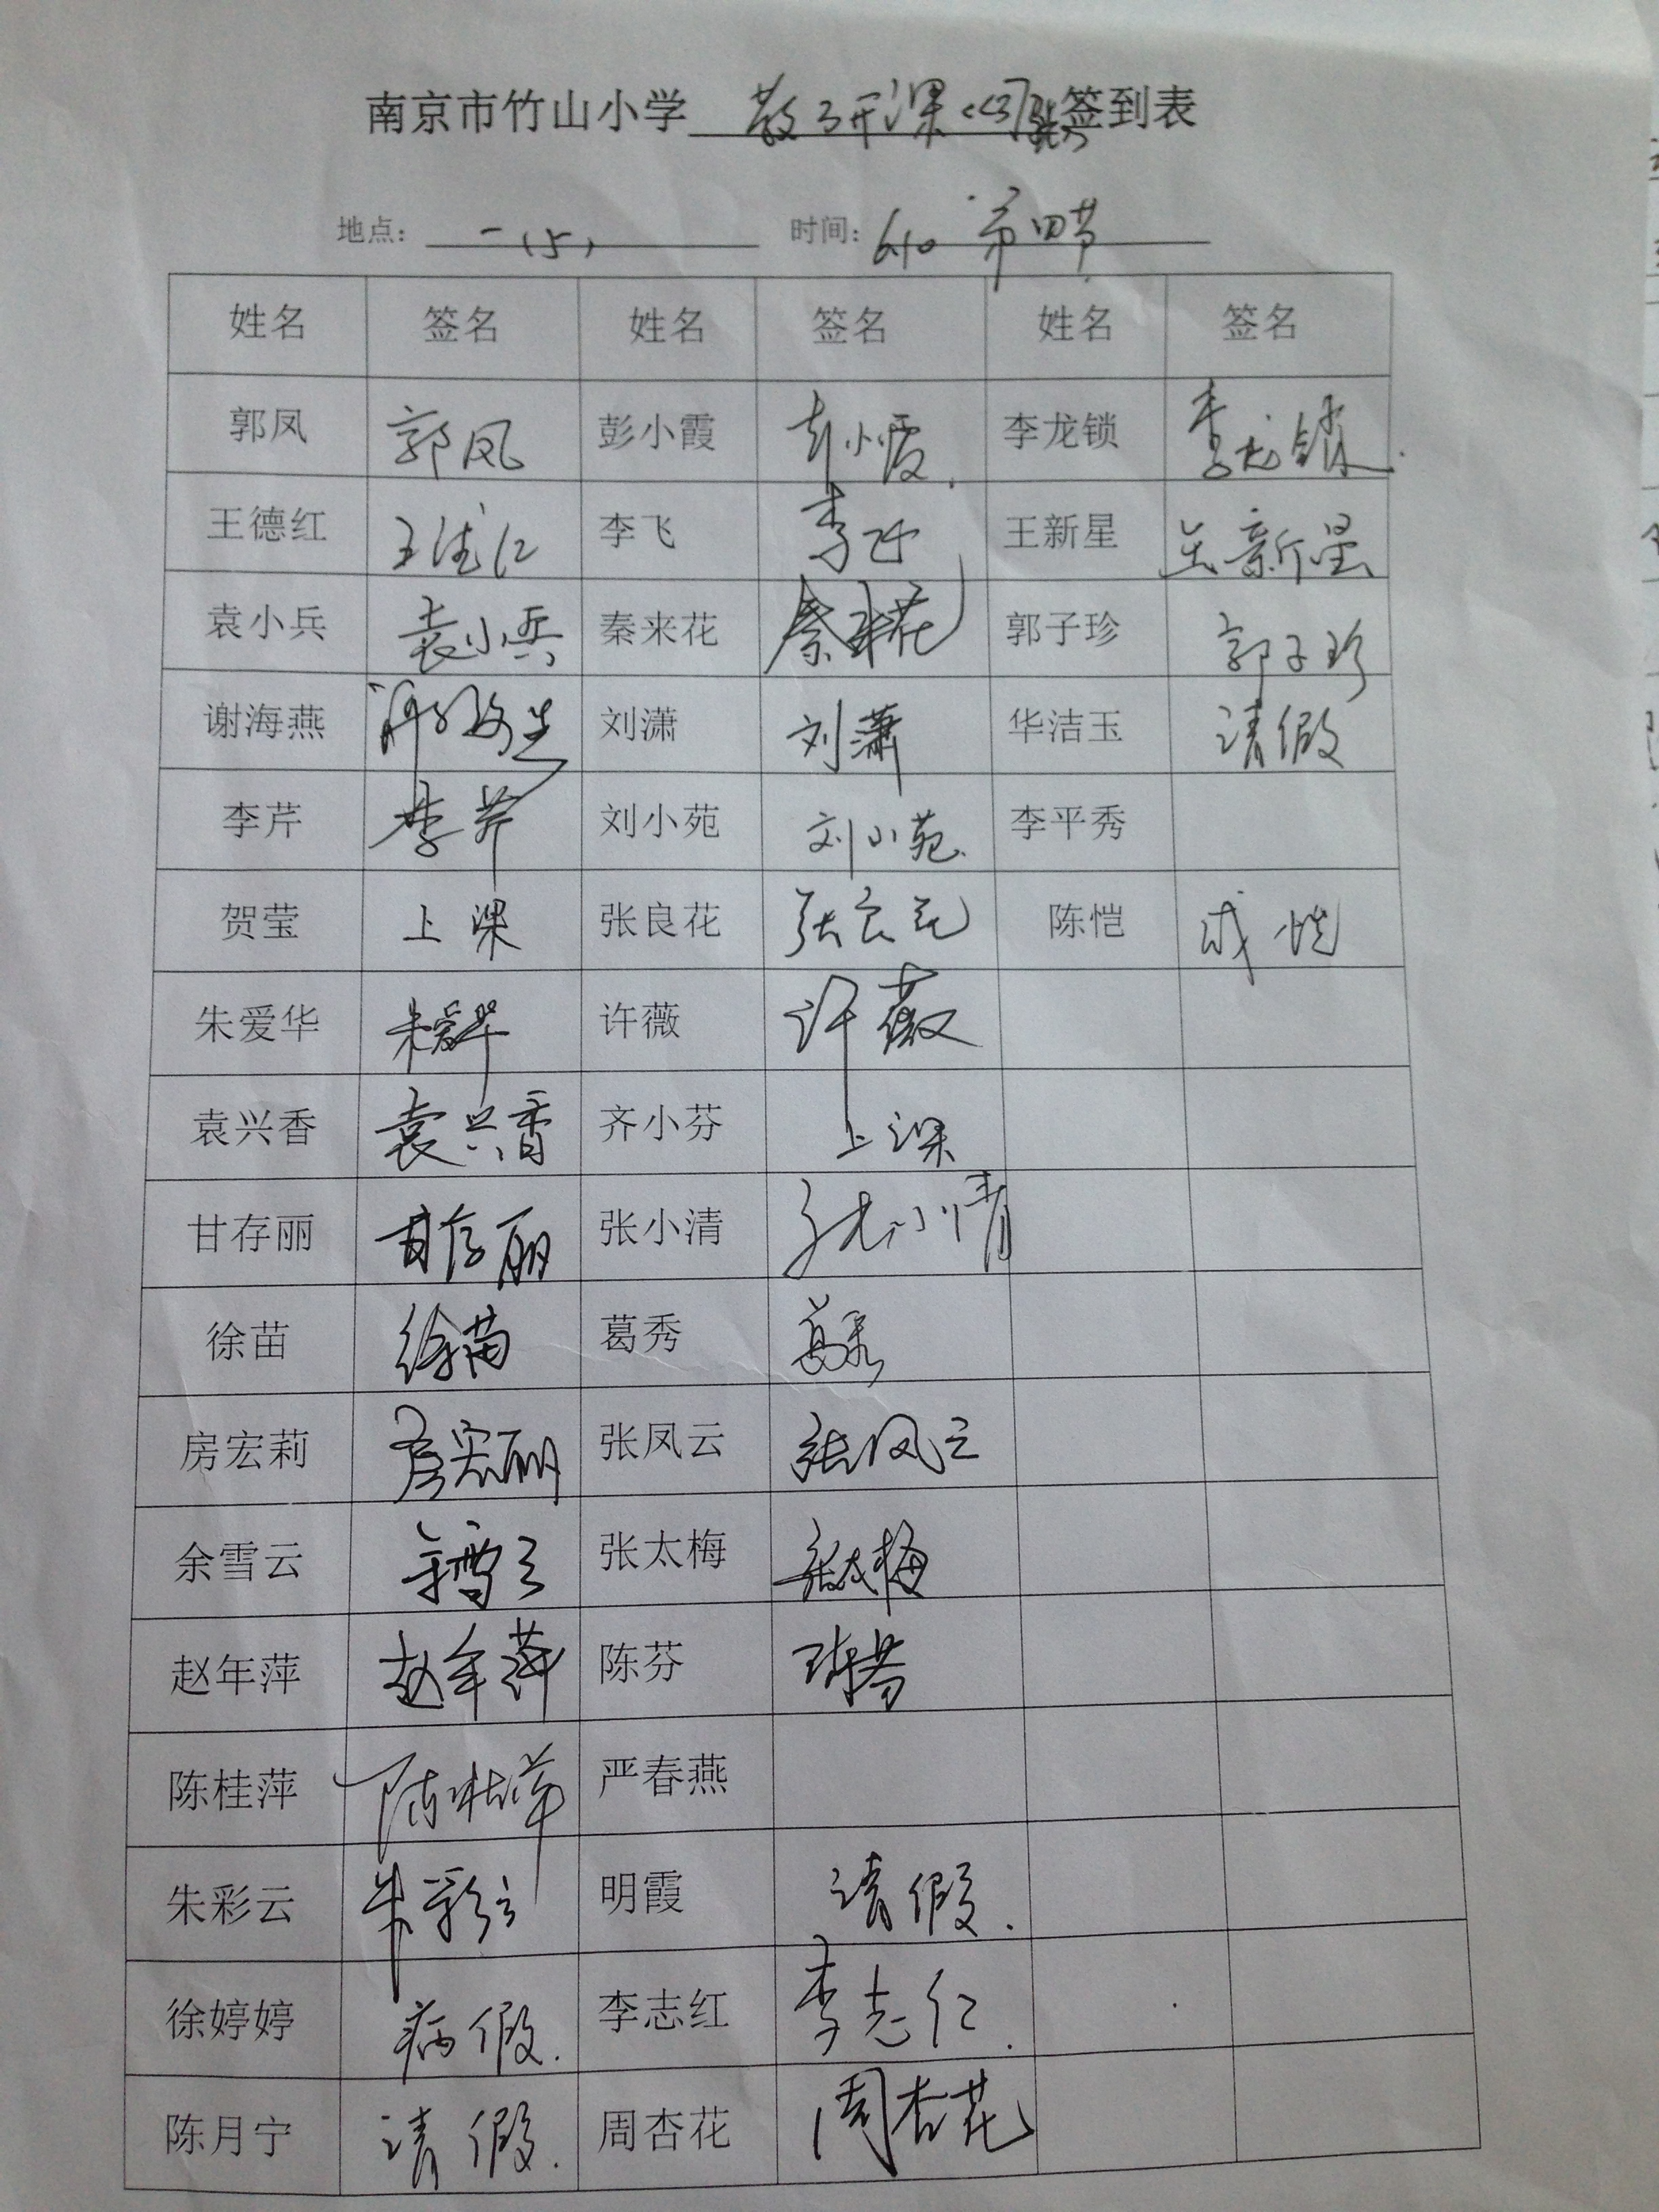 南京市竹山小学 教研课 签到表
地点: 一(5) 时间: 6.10 第四节
姓名 签名 姓名 签名 姓名 签名
郭凤 郭凤 彭小霞 彭小霞. 李龙锁 李龙锁.
王德红 王德红 李飞 李飞 王新星 王新星
袁小兵 袁小兵 秦来花 秦来花 郭子珍 郭子珍
谢海燕 谢海燕 刘潇 刘潇 华洁玉 请假
李芹 李芹 刘小苑 刘小苑. 李平秀
贺莹 上课 张良花 张良花 陈恺 成恺
朱爱华 朱爱华 许薇 许薇
袁兴香 袁兴香 齐小芬 上课
甘存丽 甘存丽 张小清 张小清
徐苗 徐苗 葛秀 葛秀
房宏莉 房宏丽 张凤云 张凤云
余雪云 余雪云 张太梅 张太梅
赵年萍 赵年萍 陈芬 陈芬
陈桂萍 陈桂萍 严春燕
朱彩云 朱彩云 明霞 请假.
徐婷婷 病假. 李志红 李志红.
陈月宁 请假. 周杏花 周杏花